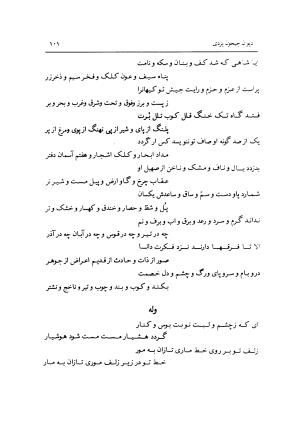 دیوان جیحون یزدی
۱۰۱
ایا شاهی که شد کف و بنان و سکه و نامت
پناه سیف و عون کلک و فخر سیم و ذخر زر
پر است از عزم و حزم و رایت جیش تو کیهانرا
ز پست و برز و فوق و تحت و شرق و غرب و بحر و بر
فتد گاه تک خنگ قلل کوب تلل برت
پلنگ از پای و شیر از پی نهنگ از پوی و مرغ از پر
یک از صد گونه اوصاف تو ننویسد کس ار گردد
مداد ابحار و کلک اشجار و هفتم آسمان دفتر
بدزدد یال و ناف و مشک و ناخن از صهیل او
عقاب چرخ و گاو ارض و پیل مست و شیر نر
شمارد پاو دست و سم و ساق و ساعدش یکسان
پل و شط و حصار و خندق و کهسار و خشک و تر
نداند گرم و سرد و رعد و برق و اب و برف و نم
چه در تیر و چه در قوس و چه در آبان چه در آذر
الا تا فرقها دارند نزد فکرت دانا
صور از ذات و حادث از قدیم اعراض از جوهر
در و بام و سر و پای و رگ و چشم و دل خصمت
بکند و کوب و بند و چوب و تیر و ناخج و نشتر
وله
ای که ز چشم و لبت نوبت بوس و کنار
گردد هشیار مست مست شود هوشیار
زلف تو بر روی خط ماری تازان به مور
خط تو در زیر زلف موری تازان به مار